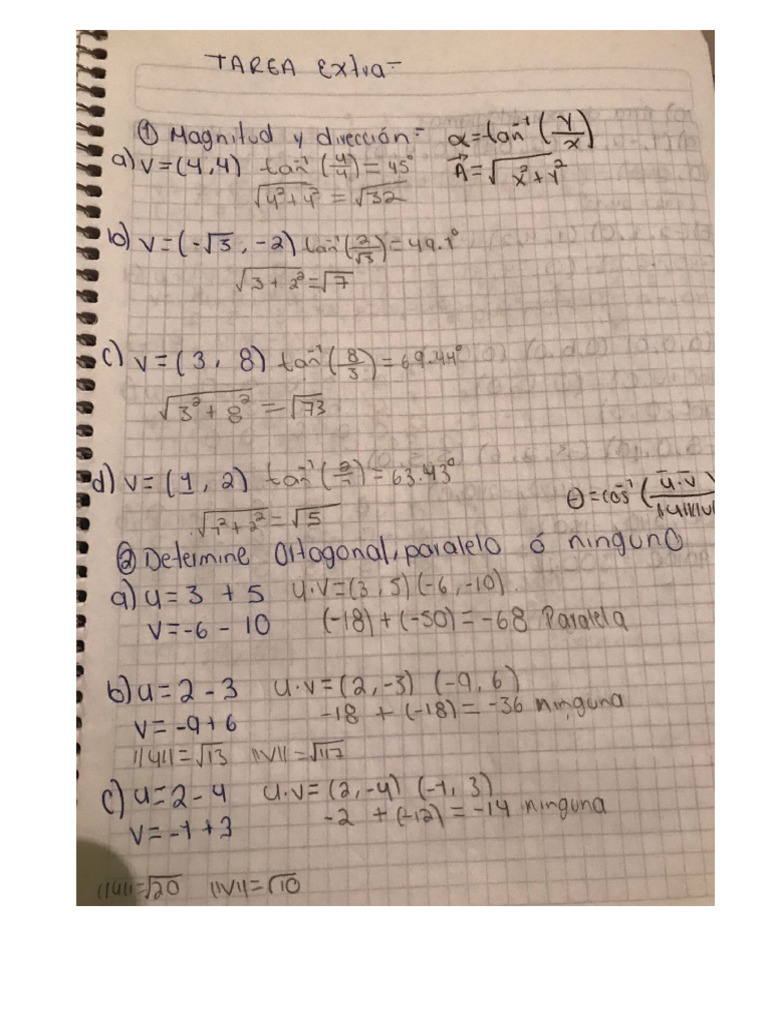 TAREA Extra-
① Magnitud y dirección- α=tan⁻¹(y/x)
a) V=(4,4) tan⁻¹(4/4)=45° A⃗=√x²+y²
√4²+4² = √32
b) V=(-√3, -2) tan⁻¹(2/√3)=49.1°
√3+2²=√7
c) V=(3, 8) tan⁻¹(8/3)=69.44°
√3²+8² = √73
d) V=(1, 2) tan⁻¹(2/1)=63.43°
√1²+2²=√5 θ=cos⁻¹(u̅·v̅/||u||||v||
② Determine Ortogonal, paralelo ó ninguno
a) u=3+5 u·v=(3,5)(-6,-10)
v=-6-10 (-18)+(-50)=-68 Paralela
b) u=2-3 u·v=(2,-3) (-9,6)
v=-9+6 -18+(-18)=-36 ninguna
||u||=√13 ||v||=√117
c) u=2-4 u·v=(2,-4) (-1,3)
v=-1+3 -2+(-12)=-14 ninguna
||u||=√20 ||v||=√10